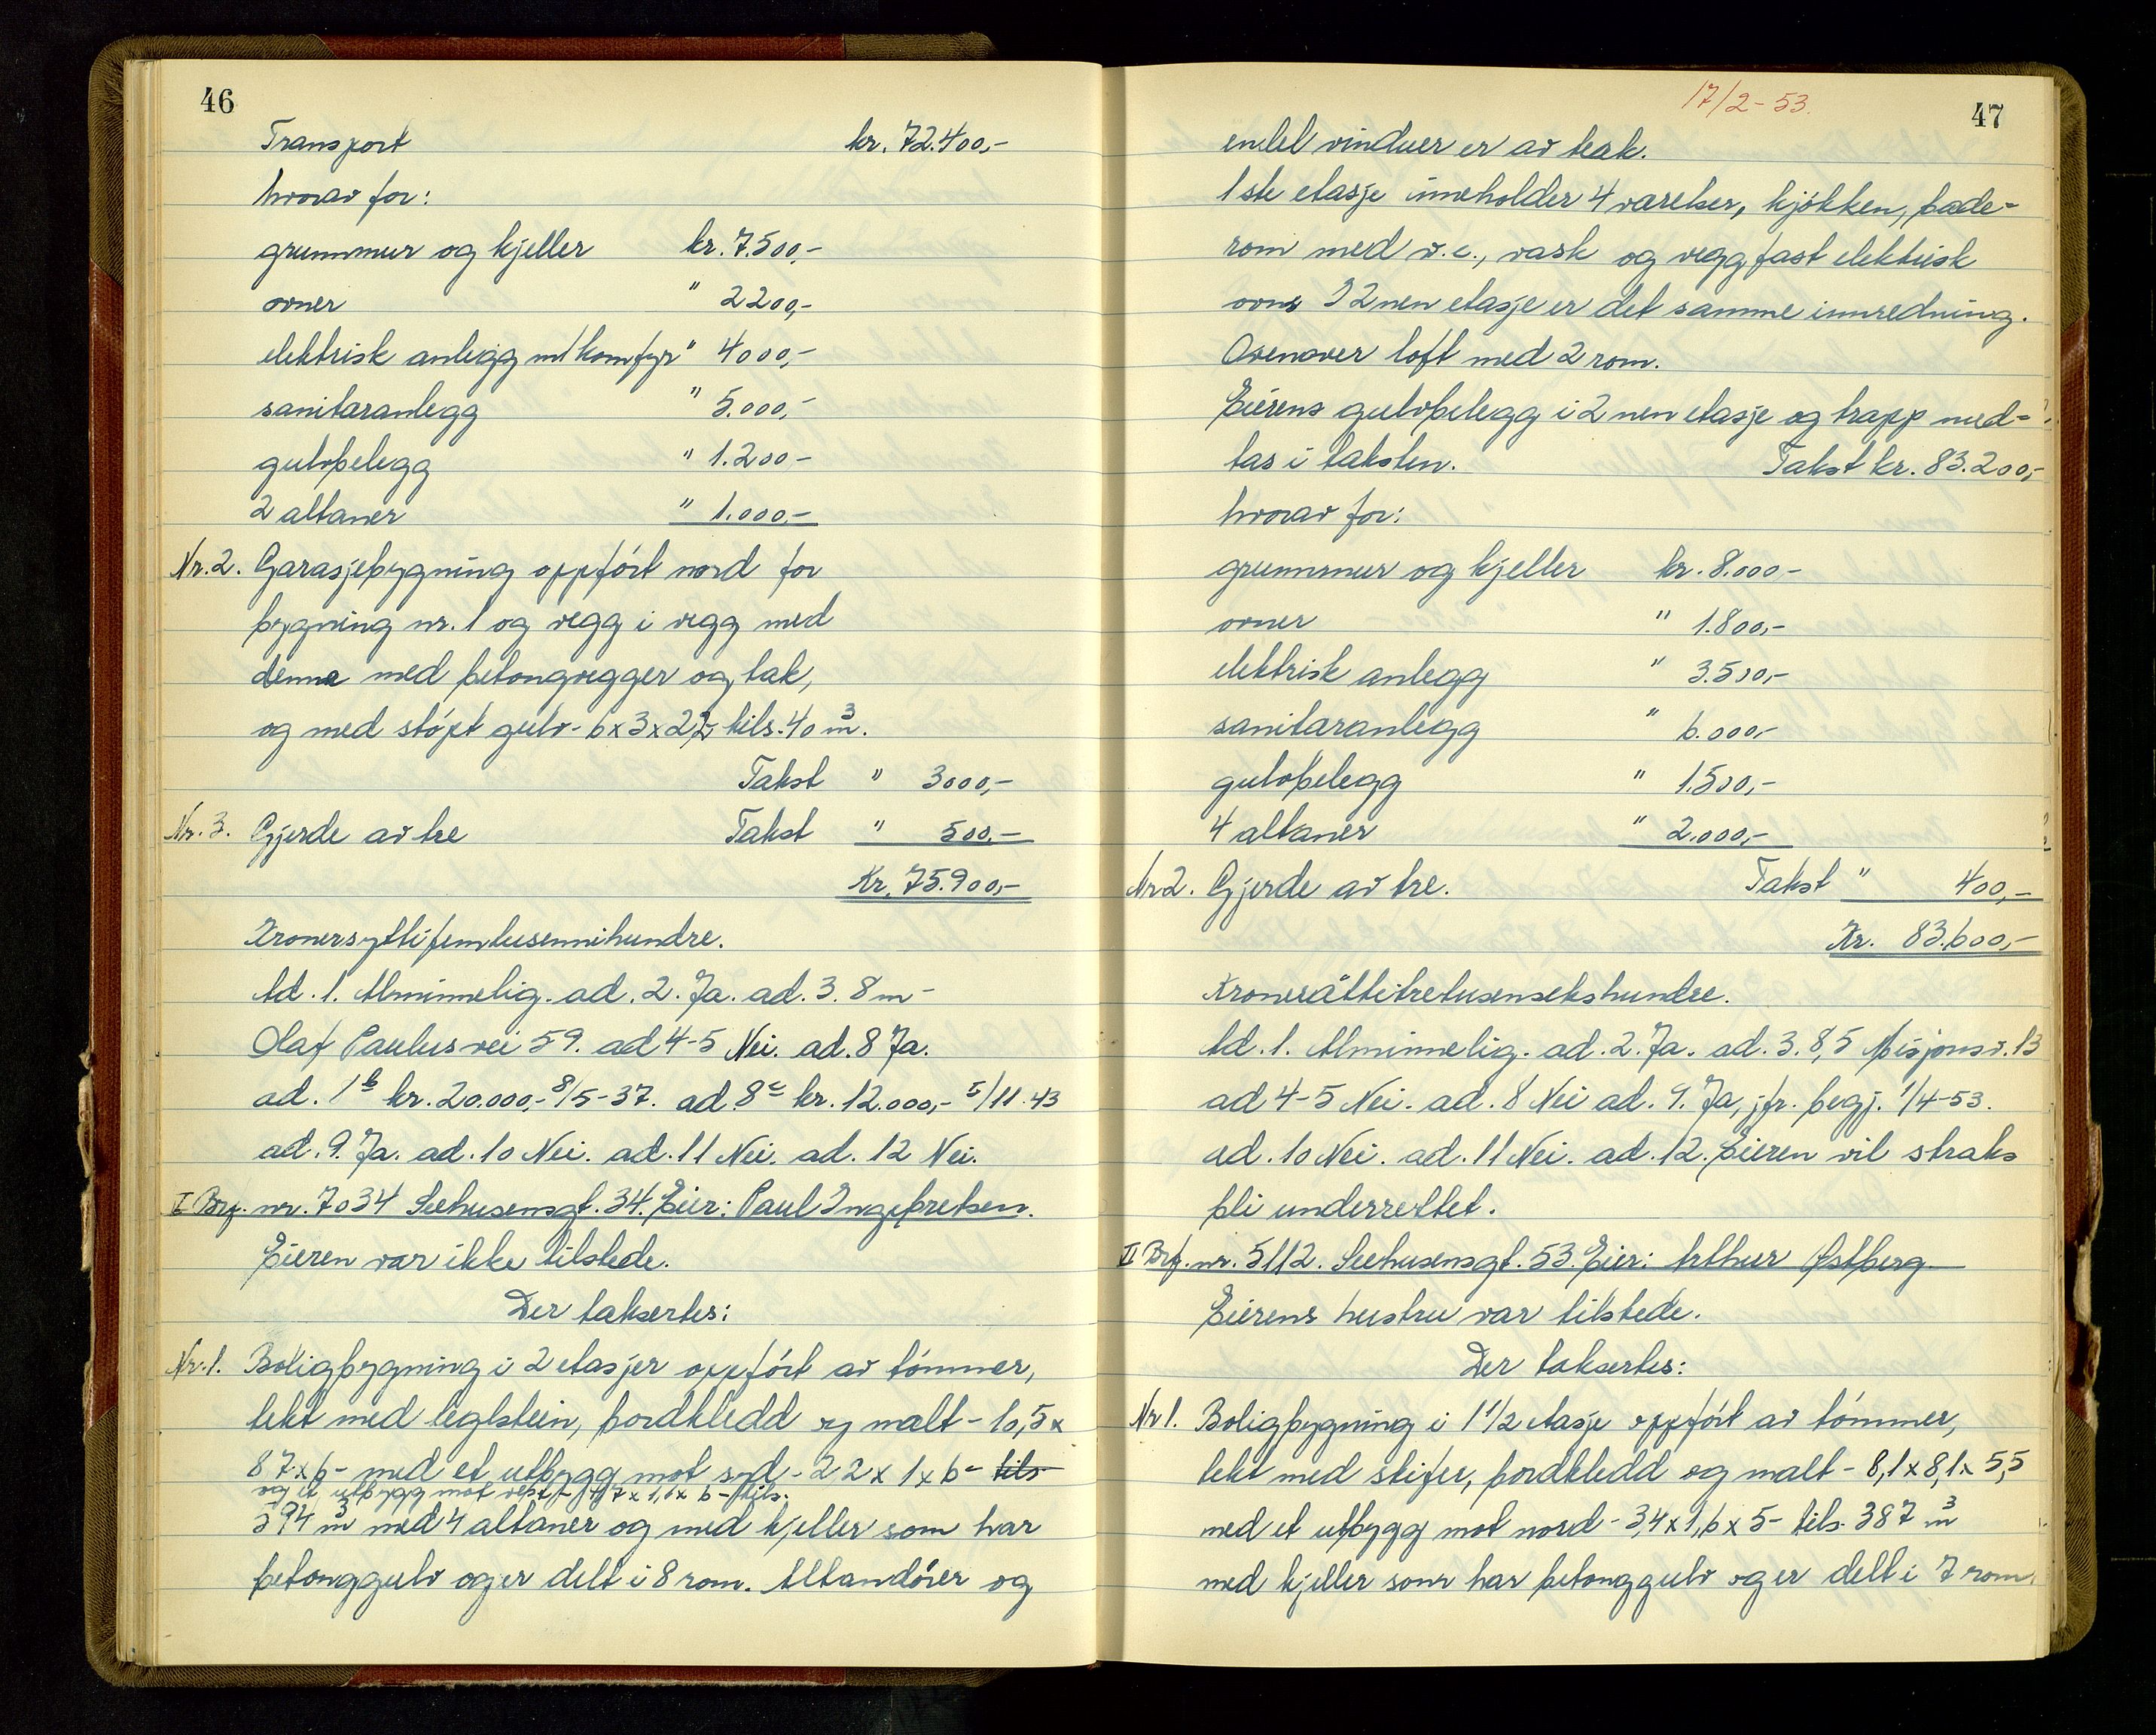 46
Transport kr. 72.400,-
hvorav for:
grunnmur og kjeller kr. 7.500,-
ovner " 2200,-
elektrisk anlegg m/komfyr " 4000,-
sanitæranlegg " 5.000,-
gulvbelegg " 1.200-
2 altaner " 1.000,-
Nr. 2. Garasjebygning oppført nord for
bygning nr. 1 og vegg i vegg med
denne med betongvegger og tak,
og med støpt gulv - 6 x 3 x 2,2 - tils. 40 m³.
Takst " 3000,-
Nr. 3. Gjerde av tre Takst " 500.-
Kr. 75.900,-
Kronersyttifemtusennihundre.
Ad. 1. Alminnelig. ad. 2. Ja. ad. 3. 8 m -
Olaf Paulus vei 59. ad 4-5 Nei. ad. 8 Ja.
ad. 1b kr. 20.000,- 8/5-37. ad 8c kr. 12.000,- 5/11.43
ad. 9. Ja. ad. 10 Nei. ad. 11 Nei. ad. 12 Nei.
I Brf. nr. 7034 Seehusensgt. 34. Eier: Paul Ingebretsen.
Eieren var ikke tilstede.
Der takseres:
Nr. 1. Boligbygning i 2 etasjer oppført av tømmer,
tekt med teglstein, bordkledd og malt - 10,5 x
8,7 x 6 - med et utbygg mot syd - 2,2 x 1 x 6 - tils
og et utbygg mot vest - 4,7 x 1,1 x 6 - tils.
594 m³ med 4 altaner og med kjeller som har
betonggulv og er delt i 8 rom. Altandører og
17/2-53.
47
endel vinduer er av teak.
1ste etasje inneholder 4 værelser, kjøkken, bade-
rom med w.c., vask og veggfast elektrisk
ovn. I 2nen etasje er det samme innredning.
Ovenover loft med 2 rom.
Eierens gulvbelegg i 2nen etasje og trapp med-
tas i taksten. Takst kr. 83.200,-
hvorav for:
grunnmur og kjeller kr. 8.000-
ovner " 1.800,-
elektrisk anlegg " 3.500,-
sanitæranlegg " 6.000,-
gulvbelegg " 1.500,-
4 altaner " 2.000,-
Nr 2. Gjerde av tre. Takst " 400,-
Kr. 83.600,-
Kroneråttitretusensekshundre.
Ad. 1. Alminnelig. ad. 2. Ja. ad. 3. 8,5 Misjonsv. 13
ad 4-5 Nei. ad. 8 Nei ad. 9. Ja, jfr. begj. 1/4-53.
ad. 10 Nei. ad. 11 Nei. ad. 12. Eieren vil straks
bli underrettet.
II Brf. nr. 5112. Seehusensgt. 53. Eier: Arthur Østberg
Eierens hustru var tilstede.
Der takseres:
Nr 1. Boligbygning i 1 1/2 etasje oppført av tømmer,
tekt med skifer, bordkledd og malt - 8,1 x 8,1 x 5,5
med et utbygg mot nord - 3,4 x 1,6 x 5 - tils. 387 m³
med kjeller som har betonggulv og er delt i 7 rom.